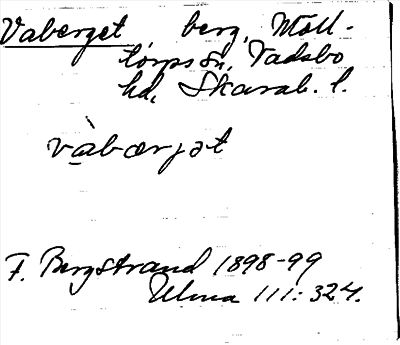 Vaberget berg, Möll-
torps sn, Vadsbo
hd, Skarab. l.
vàbærjət
F. Bergstrand 1898-99
Ulma 111: 324.